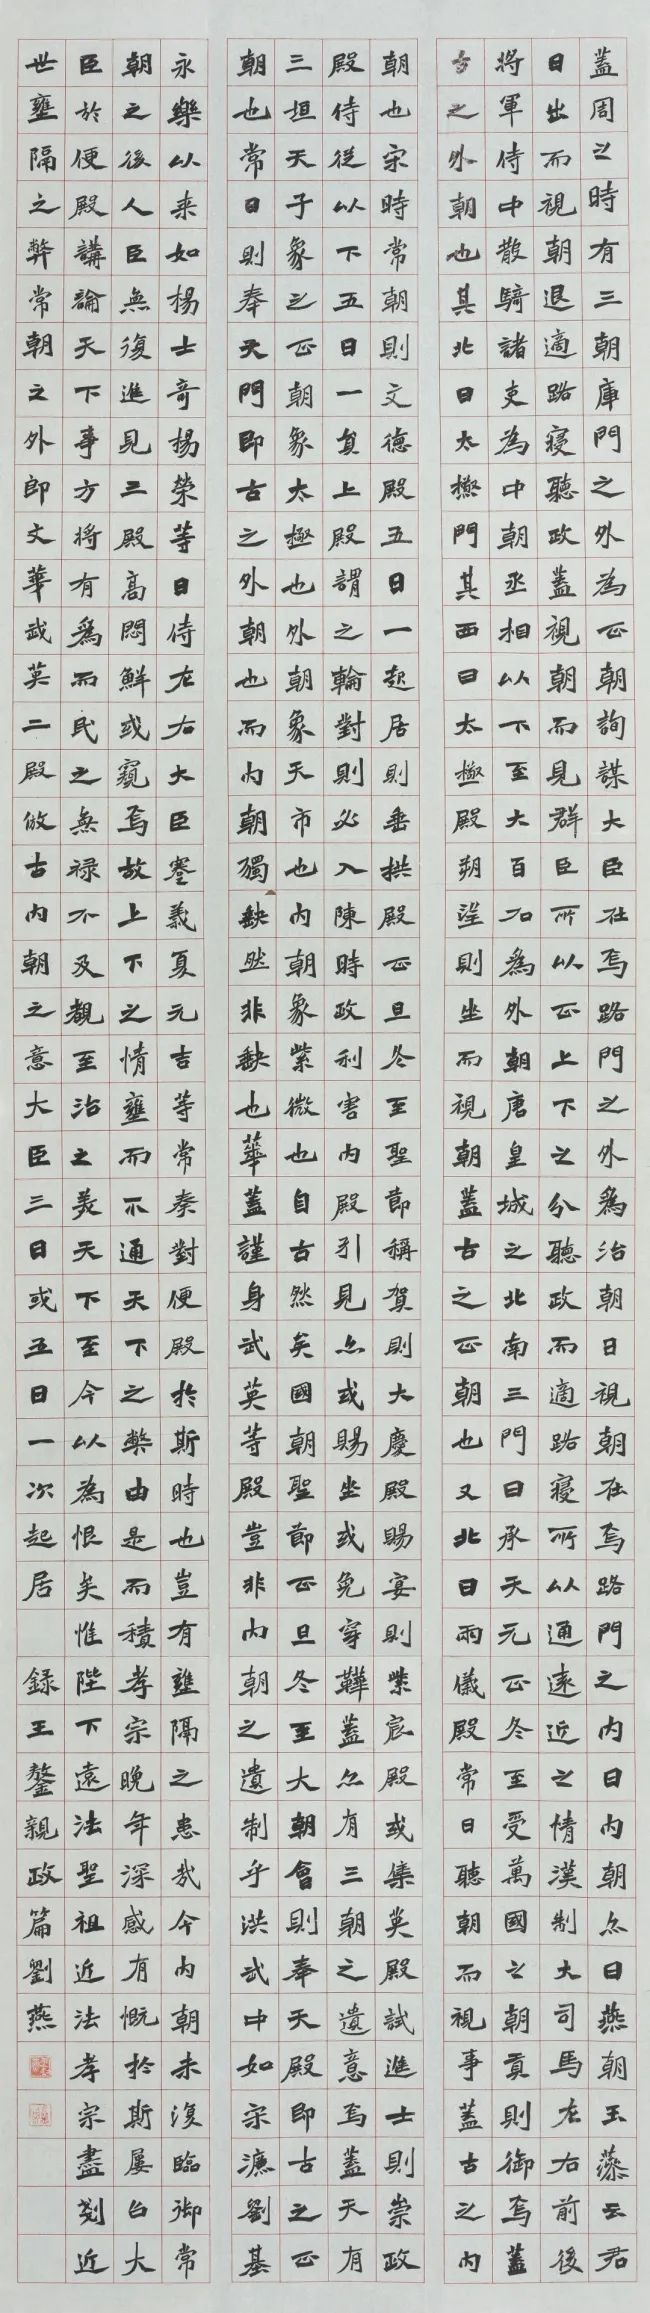 蓋周之時有三朝庫門之外為正朝詢謀大臣在焉路門之外為治朝日視朝在焉路門之內曰內朝亦曰燕朝玉藻云君
日出而視朝退適路寢聽政蓋視朝而見群臣所以正上下之分聽政而適路寢所以通遠近之情漢制大司馬左右前後
將軍侍中散騎諸吏為中朝丞相以下至大百石為外朝唐皇城之北南三門曰承天元正冬至受萬國之朝貢則御焉蓋
古之外朝也其北曰太極門其西曰太極殿朔望則坐而視朝蓋古之正朝也又北曰兩儀殿常日聽朝而視事蓋古之內
朝也宋時常朝則文德殿五日一起居則垂拱殿正旦冬至聖節稱賀則大慶殿賜宴則紫宸殿或集英殿試進士則崇政
殿侍從以下五日一員上殿謂之輪對則必入陳時政利害內殿引見亦或賜坐或免穿鞾蓋亦有三朝之遺意焉蓋天有
三垣天子象之正朝象太極也外朝象天市也內朝象紫微也自古然矣國朝聖節正旦冬至大朝會則奉天殿即古之正
朝也常日則奉天門即古之外朝也而內朝獨缺然非缺也華蓋謹身武英等殿豈非內朝之遺制乎洪武中如宋濂劉基
永樂以來如楊士奇楊榮等日侍左右大臣蹇義夏元吉等常奏對便殿於斯時也豈有壅隔之患哉今內朝未復臨御常
朝之後人臣無復進見三殿高閟鮮或窺焉故上下之情壅而不通天下之弊由是而積孝宗晚年深感有慨於斯屢召大
臣於便殿講論天下事方將有為而民之無祿不及覩至治之美天下至今以為恨矣 惟陛下遠法聖祖近法孝宗盡剗近
世壅隔之弊常朝之外即文華武英二殿倣古內朝之意大臣三日或五日一次起居 錄王鏊親政篇劉燕